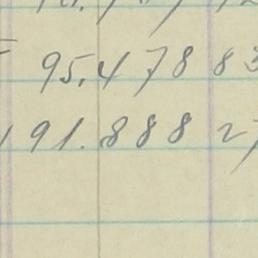 95.478 83
91.888 27